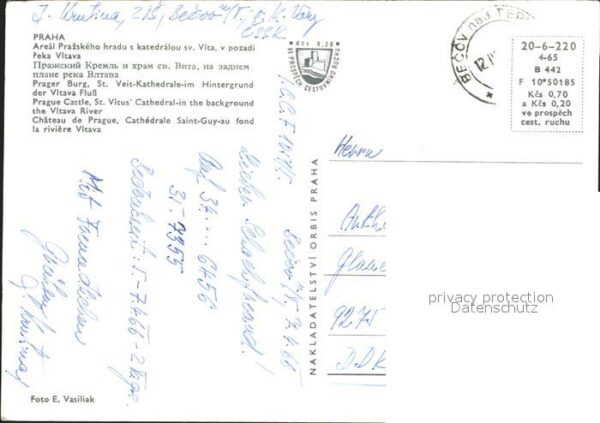 J. Krutina, ZDŠ, Bečov n/T, o. K. Vary
ČSSR
PRAHA
Areál Pražského hradu s katedrálou sv. Víta, v pozadí
řeka Vltava
Пражский Кремль и храм св. Вита, на заднем
плане река Влтава
Prager Burg, St. Veit-Kathedrale-im Hintergrund
der Vltava Fluß
Prague Castle, St. Vitus' Cathedral-in the background
the Vltava River
Château de Prague, Cathédrale Saint-Guy-au fond
la rivière Vltava
KčS 0,20
VE PROSPĚCH CESTOVNÍHO RUCHU
BEČOV nad TEP
12.
20-6-220
4-65
B 442
F 10*50185
Kčs 0,70
a Kčs 0,20
ve prospěch
cest. ruchu
Bečov n/T, 7.4.66
Lieber Schachfreund!
Auf 37. ... 6756
31. 7355
Bedenkzeit: 5.-7.4.66 - 2 Tage.
Mit
J. Krutina
NAKLADATELSTVÍ ORBIS PRAHA
Herrn
9275
DDR
privacy protection
Datenschutz
Foto E. Vasiliak